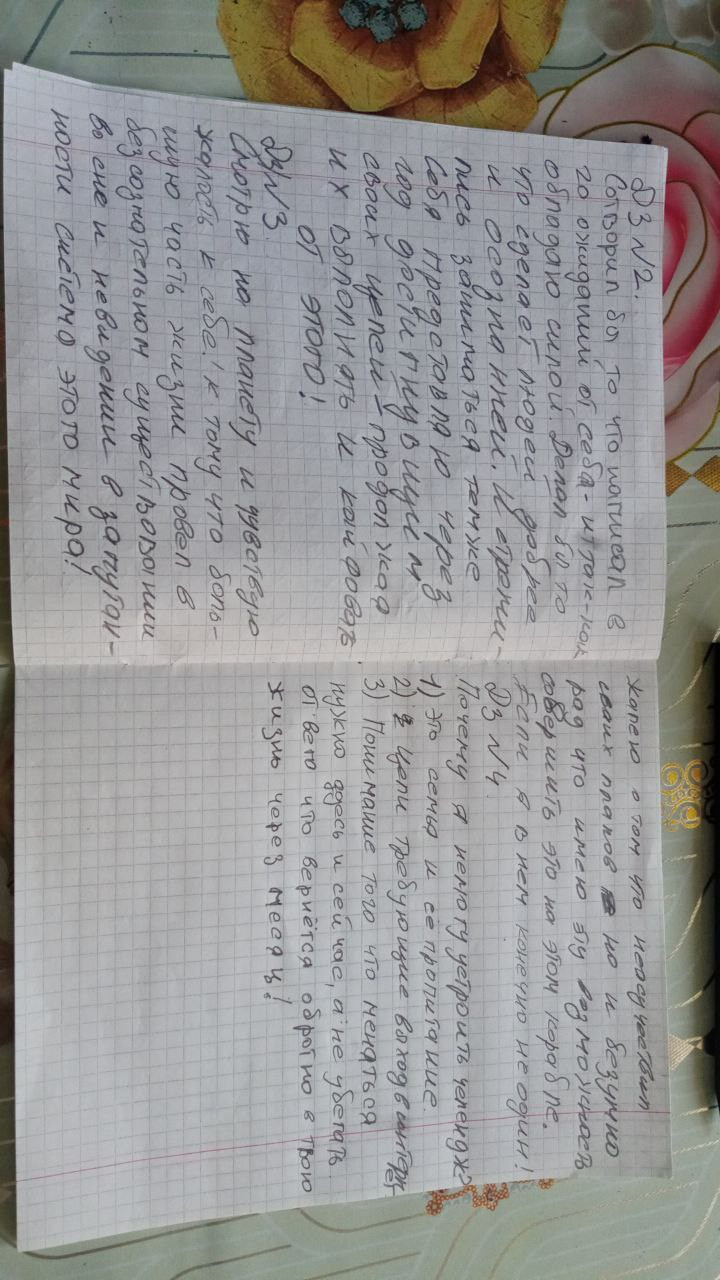 ДЗ №2.
Сотворил бы то что написал в
го ожидании от себя - и так-как
обладаю силой делал бы то
что сделает людей добрее
и осознанней. И стреми-
лись заниматься тем же
Себя представляю через
год достигнувшим
своих целей - продолжая
их выполнять и кайфовать
от этого!
ДЗ №3.
Смотрю на планету и чувствую
жалость к себе! к тому что боль-
шую часть жизни провел в
безсознательном существовании
во сне и невидении в запутан-
ности системо этого мира!
жалею о том что неосуществил
своих планов но и безумно
рад что имею эту возможность
совершить это на этом корабле.
Если я в нем конечно не один!
ДЗ №4.
Почему я немогу устроить челендж?
1) Это семья и её пропитание.
2) Цели требующие выход в интерн-
ет.
3) Понимание того что меняться
нужно здесь и сейчас, а не убегать
от всего что вернётся обратно в твою
жизнь через месяц!